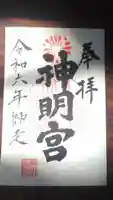 奉拝
神明宮
令和六年師走